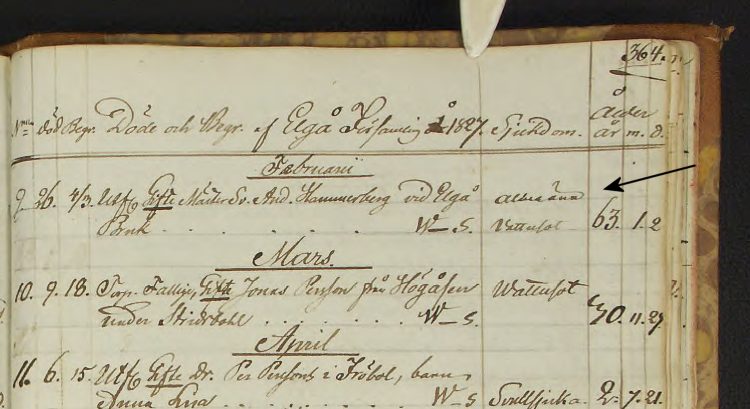 364.
Ålder
Nro död Begr. Döde och Begr. af Elgå Församling Å 1827. Sjukdom. år m. d.
Februarii
9 26. 4/3. Utf. Gifte Mäster Sv. And. Hammerberg vid Elgå allmänn
Bruk . . . . . . W_S. Vattusot 63. 1. 2
Mars.
10. 9. 18. Torp. Gifte Jonas Persson från Högåsen Wattusot
under Stridsbohl . . . . . . W_S. 70. 11. 27
April
11. 6. 15. Utf. Gifte Dr. Per Perssons i Fröbol, barn
Anna Lisa . . . . . W_S Svullsjuka. 2. 7. 21.